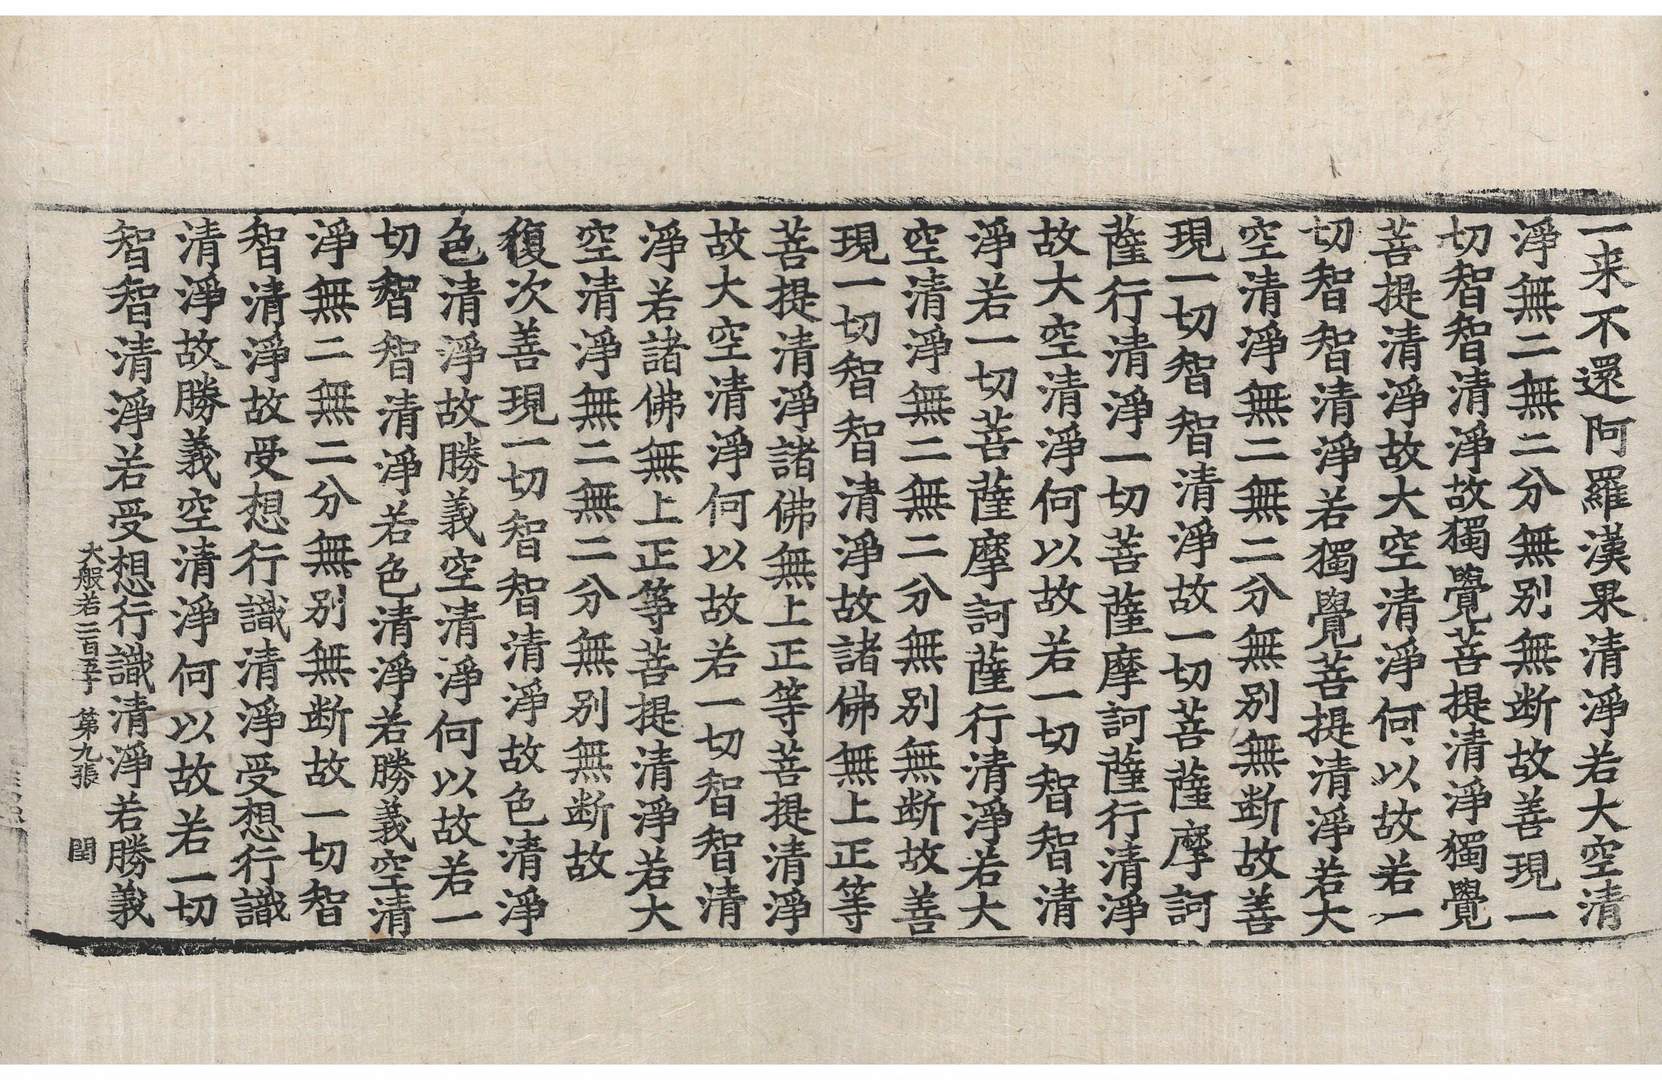 一来不還阿羅漢果清淨若大空清
淨無二無二分無別無断故善現一
切智智清淨故獨覺菩提清淨獨覺
菩提清淨故大空清淨何以故若一
切智智清淨若獨覺菩提清淨若大
空清淨無二無二分無別無断故善
現一切智智清淨故一切菩薩摩訶
薩行清淨一切菩薩摩訶薩行清淨
故大空清淨何以故若一切智智清
淨若一切菩薩摩訶薩行清淨若大
空清淨無二無二分無別無断故善
現一切智智清淨故諸佛無上正等
菩提清淨諸佛無上正等菩提清淨
故大空清淨何以故若一切智智清
淨若諸佛無上正等菩提清淨若大
空清淨無二無二分無別無断故
復次善現一切智智清淨故色清淨
色清淨故勝義空清淨何以故若一
切智智清淨若色清淨若勝義空清
淨無二無二分無別無断故一切智
智清淨故受想行識清淨受想行識
清淨故勝義空清淨何以故若一切
智智清淨若受想行識清淨若勝義
大般若二百五十 第九張 閏